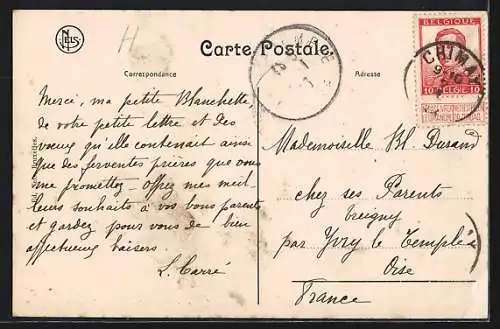 NELS
H
Carte Postale.
Correspondance
Adresse
BELGIQUE
10 10
CHIMAY
Merci, ma petite Blanchette,
de votre petite lettre et des
vœux qu'elle contenait ainsi
que des ferventes prières que vous
me promettez. Offrez mes meil-
leurs souhaits à vos bons parents
et gardez pour vous de bien
affectueux baisers.
L. Carré
Mademoiselle Bl. Durand
chez ses Parents
par Ivry le Temple
Oise
France